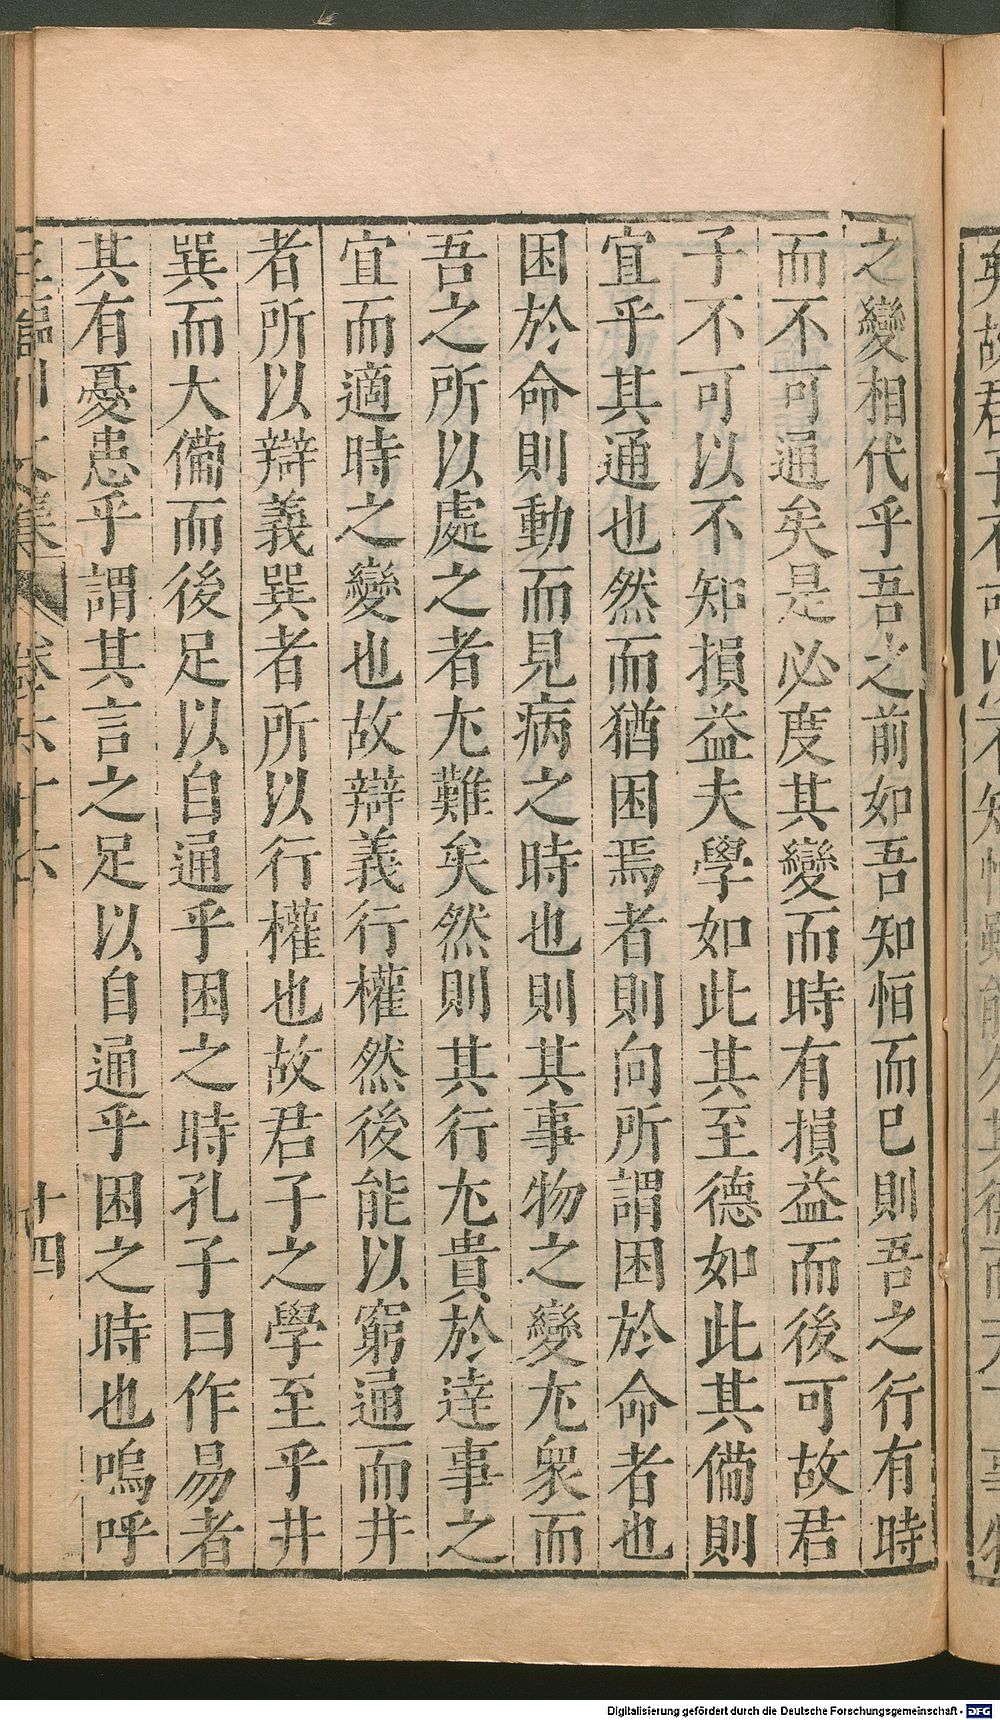 之變相代乎吾之前如吾知恒而已則吾之行有時
而不可通矣是必度其變而時有損益而後可故君
子不可以不知損益夫學如此其至德如此其備則
宜乎其通也然而猶困焉者則向所謂困於命者也
困於命則動而見病之時也則其事物之變尤衆而
吾之所以處之者尤難矣然則其行尤貴於達事之
宜而適時之變也故辯義行權然後能以窮通而井
者所以辯義巽者所以行權也故君子之學至乎井
巽而大備而後足以自通乎困之時孔子曰作易者
其有憂患乎謂其言之足以自通乎困之時也嗚呼
王臨川文集 卷六十六 十四
矣故君子不可以不知恒
Digitalisierung gefördert durch die Deutsche Forschungsgemeinschaft - DFG